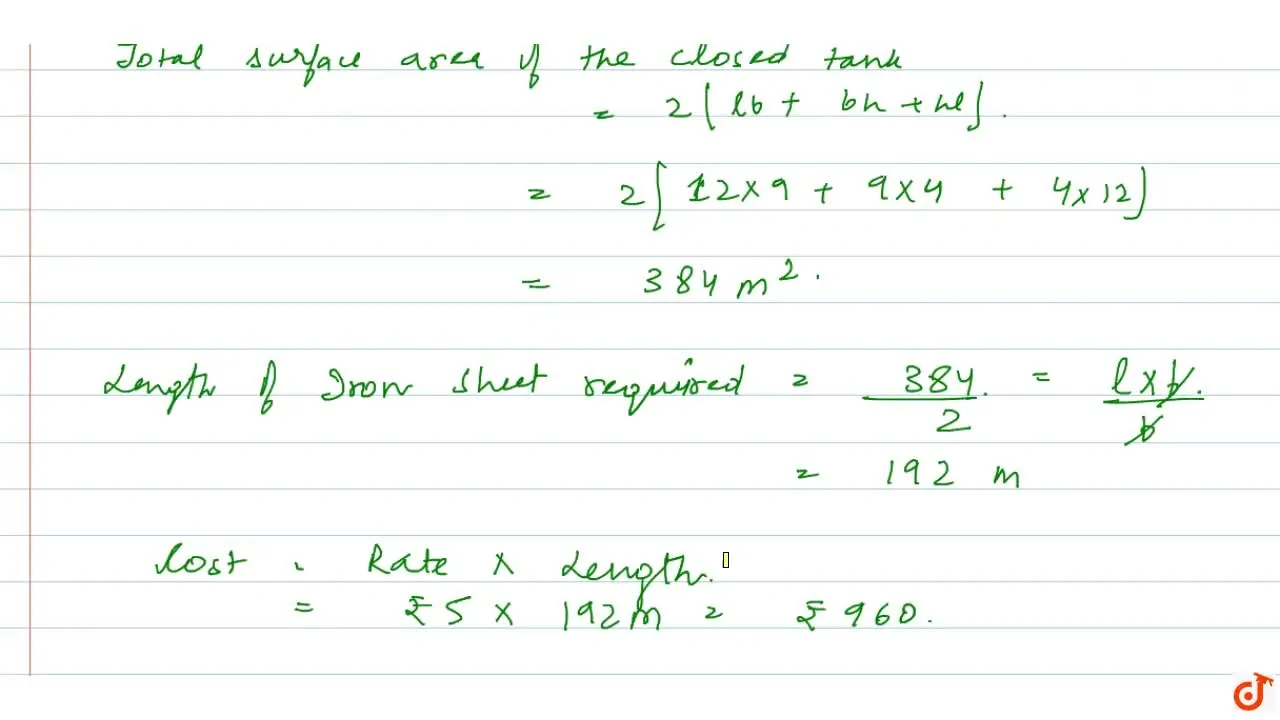 Total surface area of the closed tank
= 2[lb + bh + hl].
= 2[12×9 + 9×4 + 4×12]
= 384 m².
Length of Iron sheet required = 384/2 = l×b/b.
= 192 m
Cost = Rate × Length.
= ₹5 × 192m = ₹960.